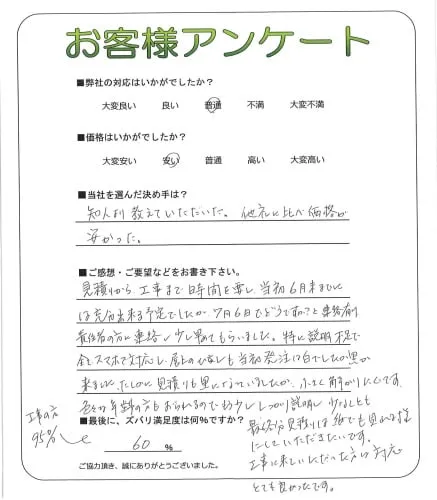 お客様アンケート
■弊社の対応はいかがでしたか？
大変良い 良い 普通 不満 大変不満
■価格はいかがでしたか？
大変安い 安い 普通 高い 大変高い
■当社を選んだ決め手は？
知人より教えていただいた。他社に比べ価格が
安かった。
■ご感想・ご要望などをお書き下さい。
見積りから、工事まで時間を要し、当初6月末までに
は充分出来る予定でしたが、7月6日でどうですか？と
の方に連絡し少し早めてもらいました。特に説明不足で
全てスマホで対応し、も当初発注は白でしたが黒が
来ました。たしかに見積りも黒になっていましたが、小さく解かりにくいです。
色々な年齢の方もおられるのでもう少ししっかり説明し少なくとも
■最後に、ズバリ満足度は何%ですか？
60 %
工事の方
95%
最終的見積りは紙でも貰える様
にしていただきたいです。
工事に来ていただいた方は対応
とても良かったです。
ご協力頂き、誠にありがとうございました。